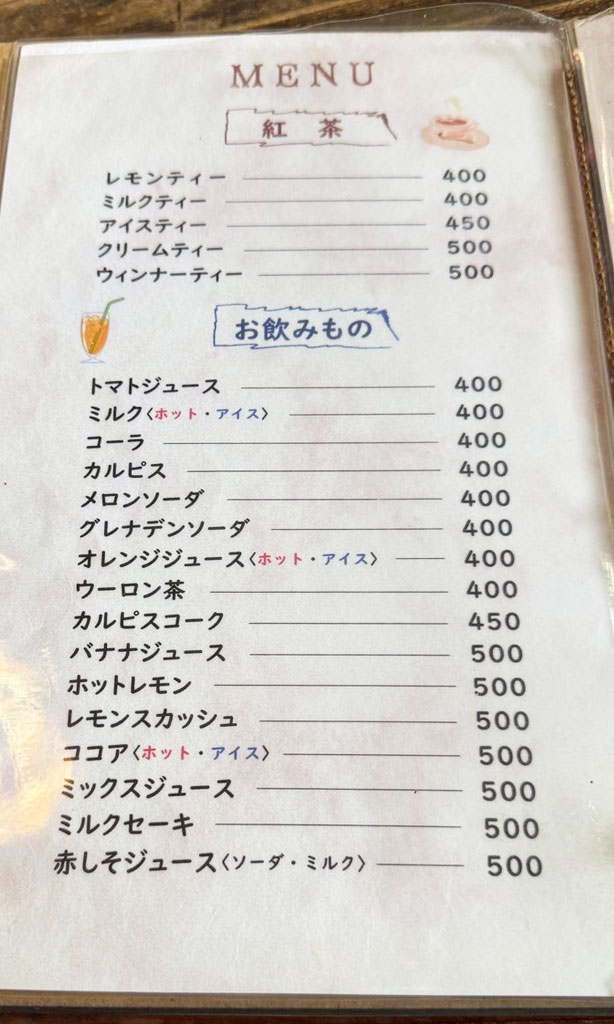 MENU
紅 茶
レモンティー 400
ミルクティー 400
アイスティー 450
クリームティー 500
ウィンナーティー 500
お飲みもの
トマトジュース 400
ミルク〈ホット・アイス〉 400
コーラ 400
カルピス 400
メロンソーダ 400
グレナデンソーダ 400
オレンジジュース〈ホット・アイス〉 400
ウーロン茶 400
カルピスコーク 450
バナナジュース 500
ホットレモン 500
レモンスカッシュ 500
ココア〈ホット・アイス〉 500
ミックスジュース 500
ミルクセーキ 500
赤しそジュース〈ソーダ・ミルク〉 500